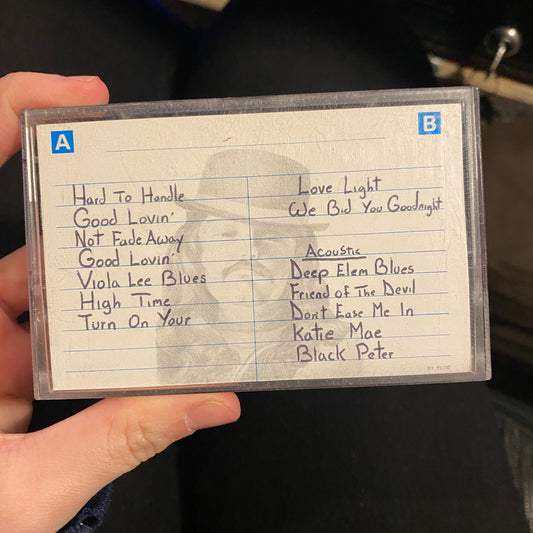 A
B
Hard To Handle
Good Lovin'
Not Fade Away
Good Lovin'
Viola Lee Blues
High Time
Turn On Your
Love Light
We Bid You Goodnight
Acoustic
Deep Elem Blues
Friend of The Devil
Don't Ease Me In
Katie Mae
Black Peter